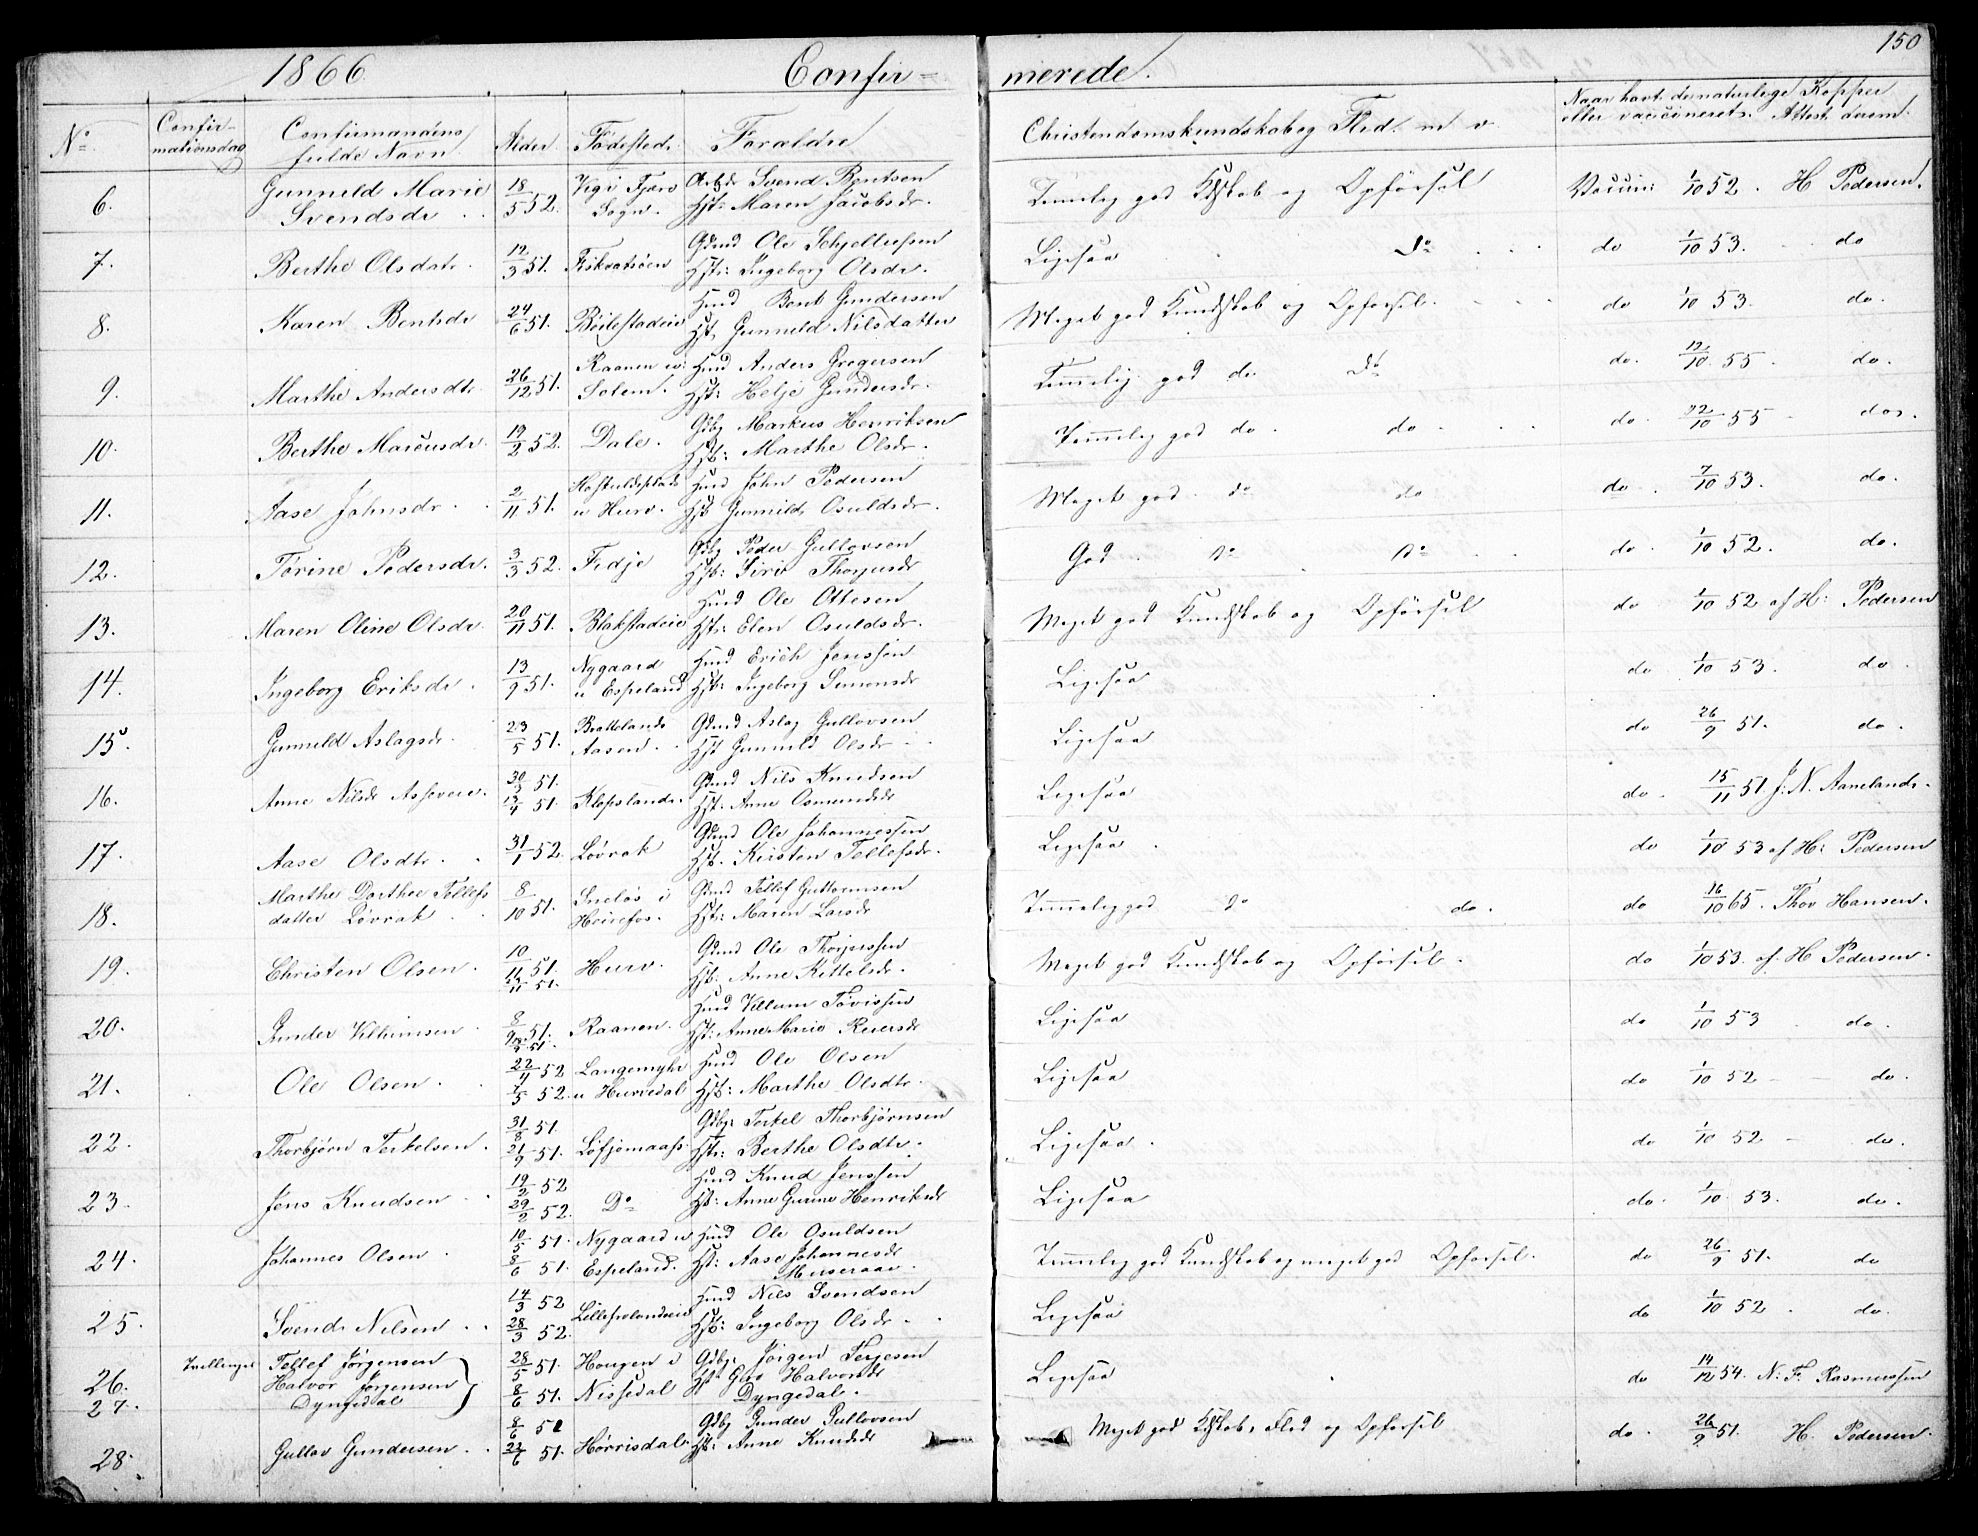 150
1866. Confir= merede.
No. Confir- mationsdag Confirmandens fulde Navn Alder. Fødested. Forældre Christendomskundskab og Flid. m v. Naar havt de naturlige Kopper eller vaccineret. Attest derom.
6. Gunnild Marie Svendsdr. 18/5 52. Vig i Fjære Sogn. Svend Bentsen Hst: Maren Jacobsdr. Temmelig god Kdskab og Opførsel Vaccin: 1/10 52. H Pedersen.
7. Berthe Olsdatr. 12/3 51. Gdmd Ole Schjellufsen Hstr: Ingeborg Olsdr. Ligesaa Do do 1/10 53. do
8. Karen Bentsdr 24/6 51. Bøilestadeie Hmd Bent Gundersen Hst, Gunneld Nilsdatter Meget god Kundskab og Opførsel. do 1/10 53. do.
9. Marthe Andersdtr. 26/12 51. Raanen u: Solem. Hmd Anders Gregersen Hst: Helje Gundersdr. Temmelig god do Do do. 12/10 55. do.
10. Berthe Marcusdr. 19/2 52. Dale. Gdbg Markus Henriksen Hst: Marthe Olsdr. Temmelig god do. do do. 12/10 55 do.
11. Aase Johnsdr. 2/11 51. u Hurv. Hmd John Pedersen Hst Gunnild Osuldsdr. Meget god. do do do. 7/10 53. do.
12. Torine Pedersdr. 3/3 52. Fidje Gdbg Peder Gullovsen Hst: Siri God. Do Do do. 1/10 52. do.
13. Maren Oline Olsdr. 20/11 51. Blakstadeie Hmd Ole Ottesen Hstr: Elen Osuldsdr. Meget god Kundskab og Opførsel do 1/10 52 af H: Pedersen
14. Ingeborg Eriksdr. 13/9 51. Nygaard u Espeland Hmd Erich Jenssen Hst: Ingeborg Simonsdr Ligesaa do 1/10 53. do.
15. Gunneld Aslagsdr. 23/5 51. Brattelands Aasen. Gdmd Aslag Gullovsen Hst Gunneld Olsdr Ligesaa do 26/9 51. do.
16. Anne Nilsdr Assevere. 30/3 51. 13/4 51. Klepslande. Gdmd Nils Knudsen Hst: Anne Osmundsdr Ligesaa do. 15/11 51 J: N. Aanelands.
17. Aase Olsdtr. 31/1 52. Løvrak Gdmd Ole Johannessen Hst. Kirsten Tellefsdr. Ligesaa. do 1/10 53 af H: Pedersen
18. Marthe Dorthee Tellefs datter Løvrak 8/10 51. Sneløs i Heirefos. Gdmd Tellef Guttormsen Hstr: Maren Larsdr Temmelig god Do do. do 16/10 65. Thov Hansen.
19. Christen Olsen. 10/11 51. 12/11 51. Hurv. Gdmd Ole Thorjussen Hst: Anne Kittelsdr. Meget god Kundskab og Opførsel. do 1/10 53. af H Pedersen.
20. Gunder Villumsen 8/9 51. Raanen. Hmd Villum Tovissen Hst: Anne Marie Reiersdr Ligesaa do 1/10 53 do.
21. Ole Olsen. 22/4 52 7/5 52. Langemyhr u Hurvedal Hmd Ole Olsen Hst: Marthe Olsdtr. Ligesaa do 1/10 52 do.
22. Thorbjørn Terkelsen. 31/8 51. 21/9 51. Løfjomaass. Gdbg: Terkel Thorbjørnsen Hstr: Berthe Olsdtr. Ligesaa. do 1/10 52 do.
23. Jens Knudsen 19/2 52 29/2 52. Do Hmd Knud Jenssen Hst: Anne Gurine Henriksdr Ligesaa do. 1/10. 53. do.
24. Johannes Olsen. 10/5 51. 8/6 51. Nygaard u Espeland. Hmd Ole Osuldsen Hst: Aase Johannesdr Temmelig god Kundskab og meget god Opførsel. do 26/9 51. do
25. Svend Nilsen 14/3 52 28/3 52. Hmd Nils Svendsen Hst: Ingeborg Olsdr. Ligesaa do 1/10 52. do.
26. 27. Tvillinger Tellef Jørgensen Halvor Jørgensen Dyngedal 28/5 51. 8/6 51. Hougen i Nissedal Gdbg: Jørgen Terjesen Hst Guro Halvorsdr Dyngedal. Ligesaa do 14/12 54. N: F. Rasmussen
28. Gullov Gundersen. 8/6 51 22/6 51. Hørrisdal. Gdbg Gunder Gullovsen Hst: Anne Knudsdr Meget god Kdskab, Flid og Opførsel do. 26/9 51. H. Pedersen.